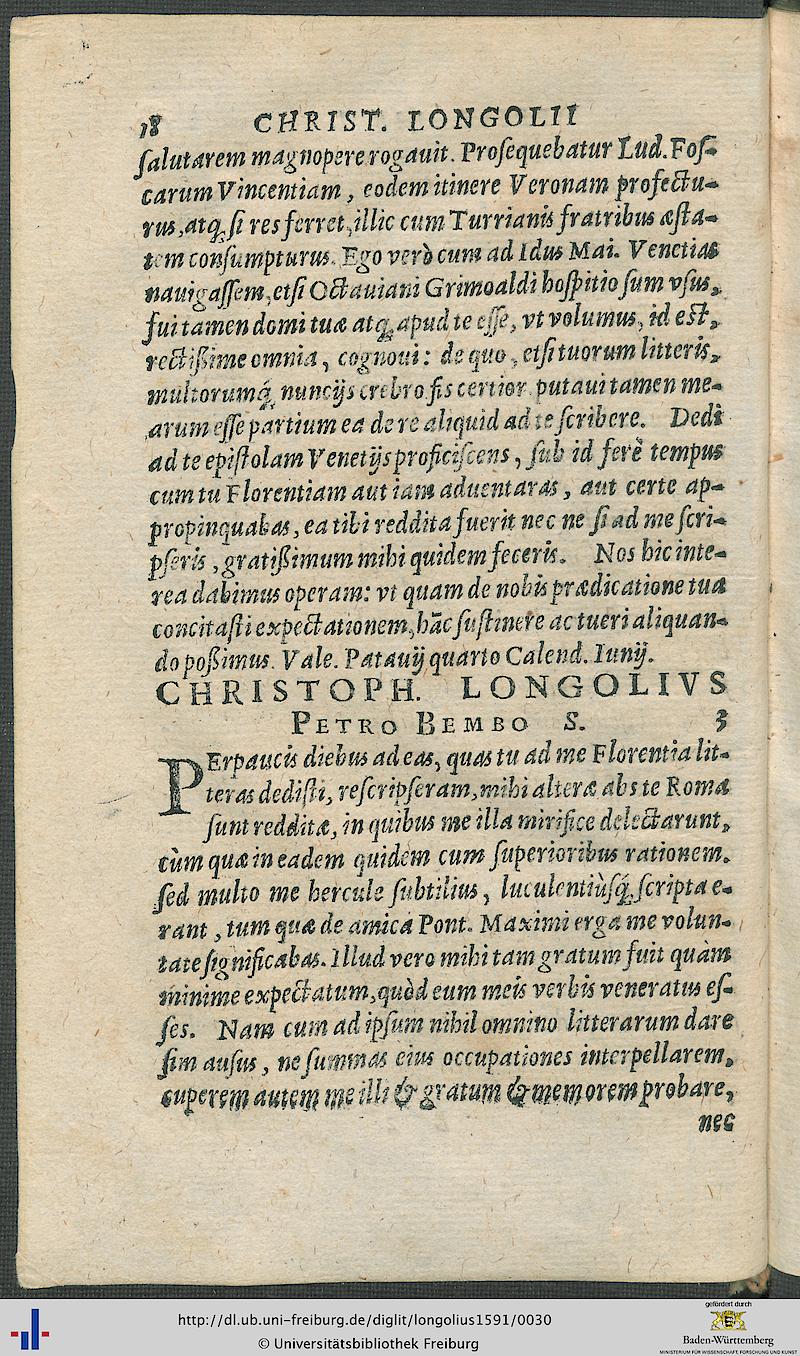 18 CHRIST. LONGOLII
ſalutarem magnopere rogauit. Proſequebatur Lud. Foſ-
carum Vincentiam, eodem itinere Veronam profectu-
rus, atq; ſi res ferret, illic cum Turrianis fratribus æſta-
tem conſumpturus. Ego verò cum ad Idus Mai. Venetias
nauigaſſem, etſi Octauiani Grimoaldi hoſpitio ſum vſus,
fui tamen domi tuæ atq; apud te eſſe, vt volumus, id eſt,
rectißime omnia, cognoui: de quo, etſi tuorum litteris,
multorumq́; nuncijs crebro fis certior putaui tamen me-
arum eſſe partium ea de re aliquid ad te ſcribere. Dedi
ad te epiſtolam Venetijs proficiſcens, ſub id ferè tempus
cum tu Florentiam aut iam aduentaras, aut certe ap-
propinquabas, ea tibi reddita fuerit nec ne ſi ad me ſcri-
pſeris, gratißimum mihi quidem feceris. Nos hic inte-
rea dabimus operam: vt quam de nobis prædicatione tua
concitaſti expectationem, hāc ſuſtinere ac tueri aliquan-
do poßimus. Vale. Patauij quarto Calend. Iunij.
CHRISTOPH. LONGOLIVS
PETRO BEMBO S. 3
PErpaucis diebus ad eas, quas tu ad me Florentia lit-
teras dediſti, reſcripſeram, mihi alteræ abs te Roma
ſunt redditæ, in quibus me illa mirifice delectarunt,
cùm quæ in eadem quidem cum ſuperioribus rationem.
ſed multo me hercule ſubtilius, luculentiùſq́; ſcripta e-
rant, tum quæ de amica Pont. Maximi erga me volun-
tate ſignificabas. Illud vero mihi tam gratum fuit quàm
minime expectatum, quòd eum meis verbis veneratus eſ-
ſes. Nam cum ad ipſum nihil omnino litterarum dare
ſim auſus, ne ſummas eius occupationes interpellarem,
cuperem autem me illi & gratum & memorem probare,
nec
http://dl.ub.uni-freiburg.de/diglit/longolius1591/0030
© Universitätsbibliothek Freiburg
gefördert durch
Baden-Württemberg
MINISTERIUM FÜR WISSENSCHAFT, FORSCHUNG UND KUNST